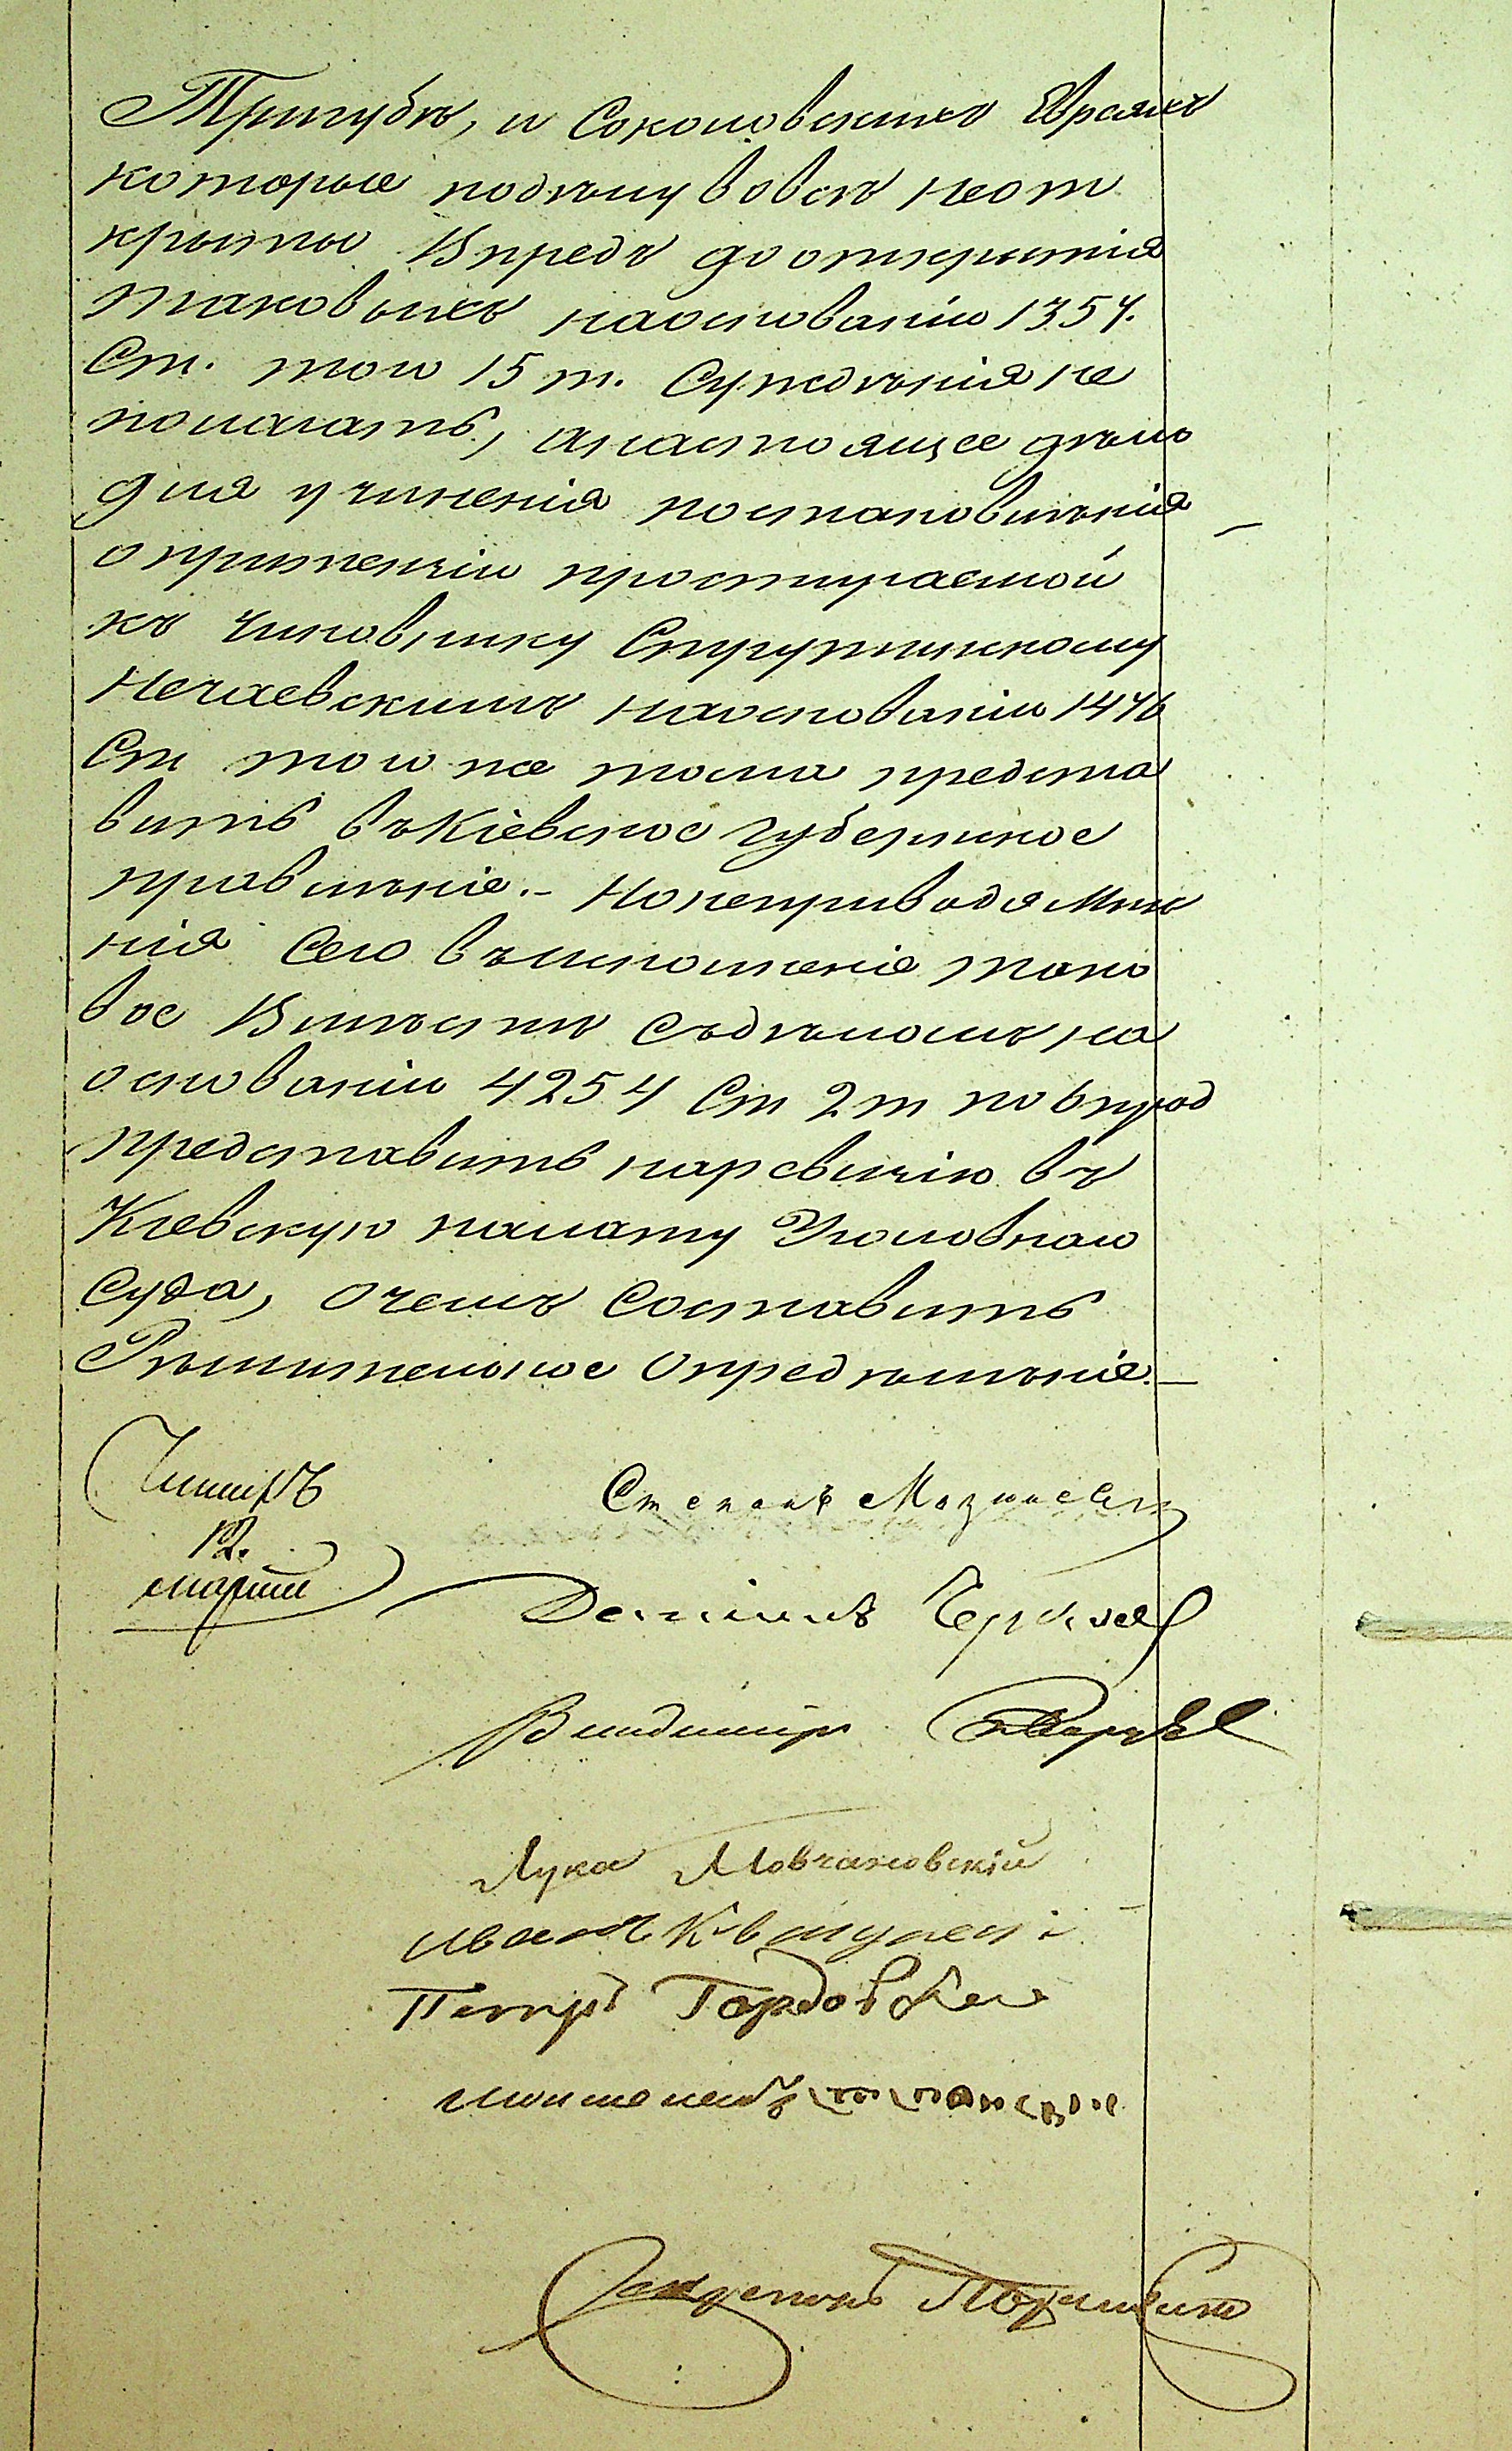 Тригубъ, и Соколовскихъ Евреяхъ
которые подѣлу вовсѣ неот
крыты впредъ до открытія
таковыхъ наоснованіи 1354.
Ст. того 15 т. Сужденія не
полагать, анастоящее дѣло
для учиненія постановлѣнія
о притензіи простираемой
къ чиновнику Струтинскому
Нечаевскимъ наоснованіи 1476
Ст того же тома предста
вить въ Кіевское Губернское
правлѣніе. - Но неприводя мнѣ
нія сего въисполненіе тако
вое вмѣсте съдѣломъ на
основаніи 4254 Ст 2 т по 6 прод
представить наревизію въ
Кіевскую палату Уголовнаго
Суда, очемъ составить
Рѣшительное опредѣлѣніе. -
12.
марта
Степанъ
Владимиръ
Лука Мовчановскій
Иванъ
Петръ Гордовскій